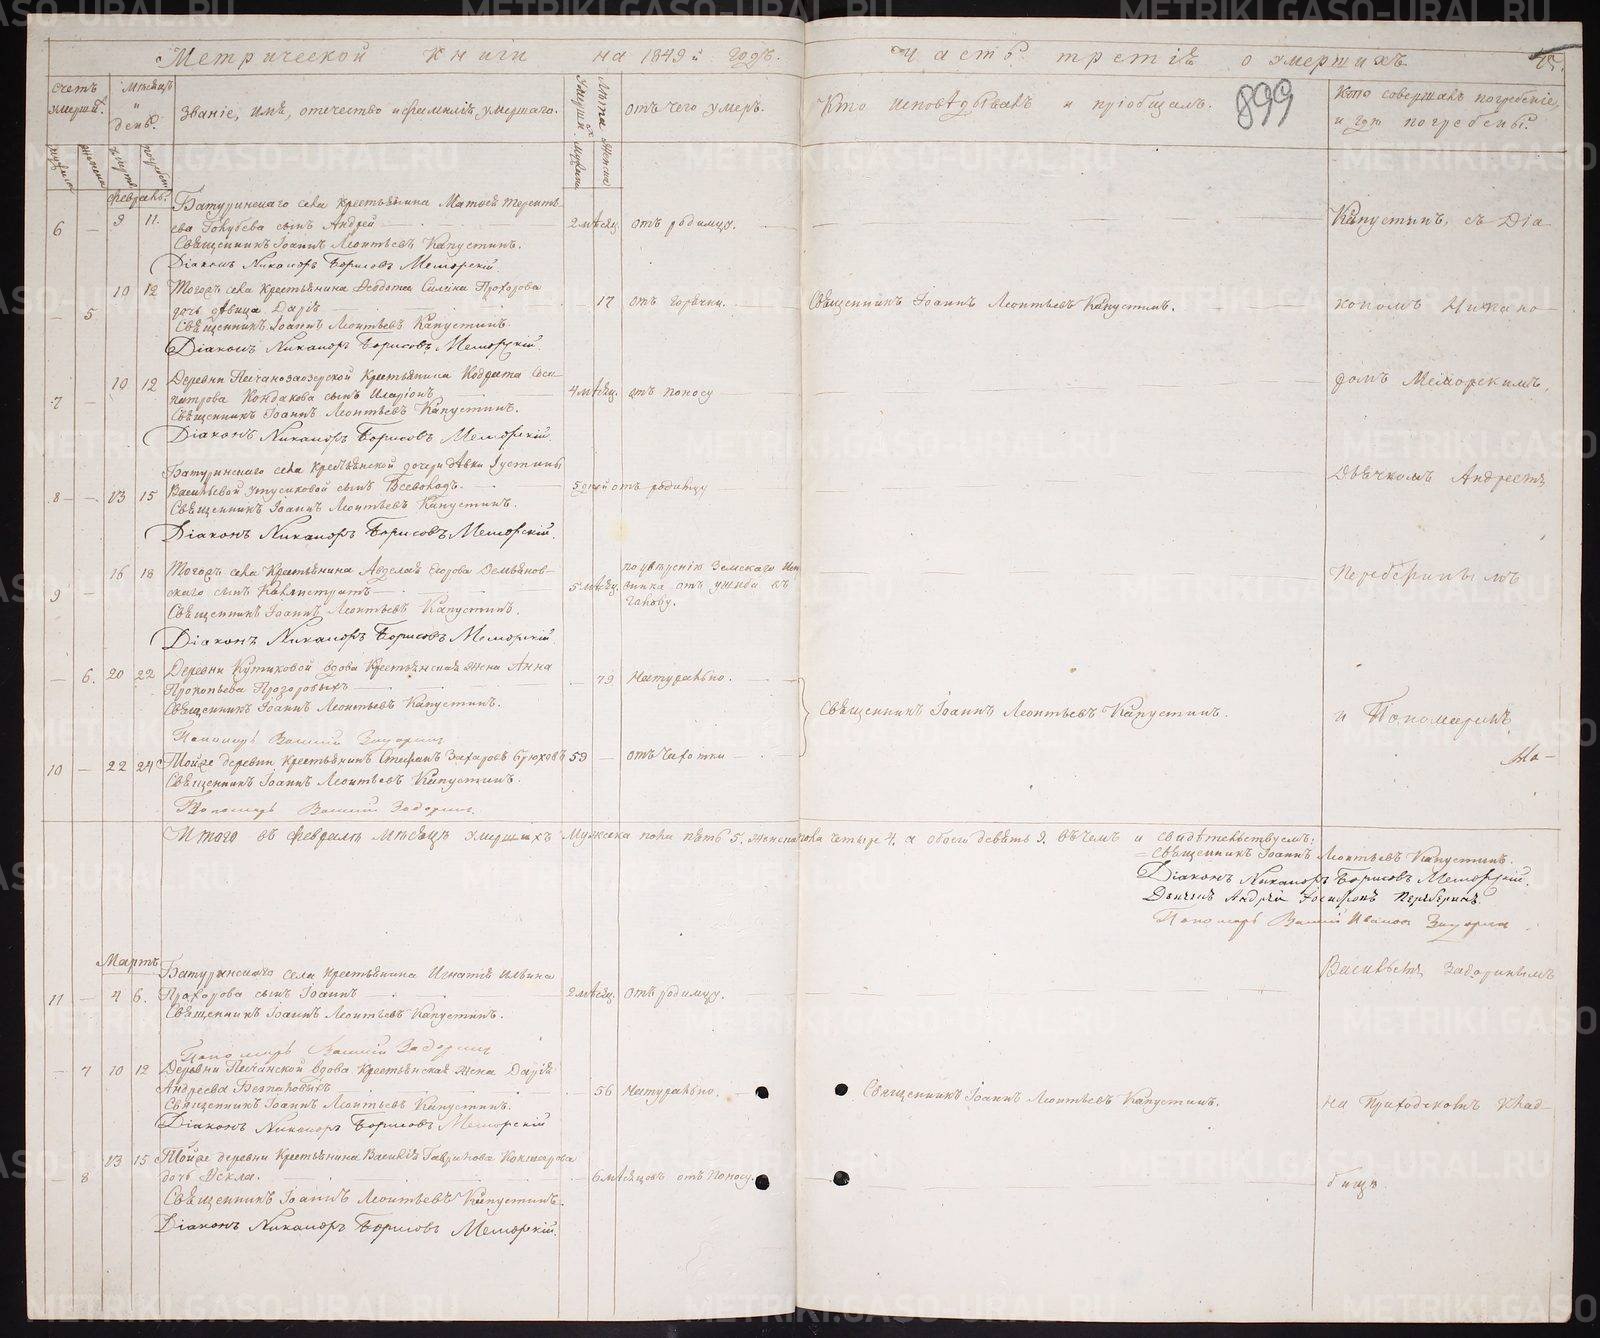 Метрической книги на 1849й годъ.
Часть третія о умершихъ
899
счетъ умерши.
Мѣсяцъ и день.
Званіе, имя, отчество и фамилія умершаго.
Лѣта умерши.
отъ чего умеръ.
Кто исповѣдывалъ и пріобщалъ.
Кто совершалъ погребеніе, и гдѣ погребены.
мужеска
женска
февраль.
Батуринскаго села крестьянина Матвея Теренть-
6 — 9 11. ева Голубева сынъ Андрей — 2 мѣсяц. отъ родимцу.
Капустинъ, съ Діа-
Священникъ Іоаннъ Леонтьевъ Капустинъ.
Діаконъ Никаноръ Борисовъ Меморскій.
10 12 Тогожъ села крестьянина Ѳедота Прохорова
— 5 дочь дѣвица Дарія — 17 отъ горячки. — Священникъ Іоаннъ Леонтьевъ Капустинъ.
кономъ Никано-
Священникъ Іоаннъ Леонтьевъ Капустинъ.
Діаконъ Никаноръ Борисовъ Меморскій.
10 12 Деревни Песчаноозерской крестьянина Кодрата
7 — патрова Кондакова сынъ Иларіонъ — 4 мѣсяц. отъ поносу
ромъ Меморскимъ,
Священникъ Іоаннъ Леонтьевъ Капустинъ.
Діаконъ Никаноръ Борисовъ Меморскій.
Батуринскаго села крестьянской дочери дѣвки Іустины
8 — 13 15 Васильевой сынъ Всеволодъ. — 5 дней отъ родимцу
Дьячкомъ Андреемъ
Священникъ Іоаннъ Леонтьевъ Капустинъ.
Діаконъ Никаноръ Борисовъ Меморскій.
16 18 Тогожъ села Крестьянина Авделая Егорова Демьянов-
9 — скаго сынъ Калистратъ — 5 мѣсяц.
по Земскаго
отъ ушиба въ
голову.
Переберинымъ
Священникъ Іоаннъ Леонтьевъ Капустинъ.
Діаконъ Никаноръ Борисовъ Меморскій
— 6. 20 22 Деревни Кутиковой вдова Крестьянская жена Анна
Прокопьева Прозоровыхъ — 79 Натурально.
Священникъ Іоаннъ Леонтьевъ Капустинъ.
Священникъ Іоаннъ Леонтьевъ Капустинъ.
и Пономаремъ
Пономарь Василий Задоринъ
10 — 22 24 Тойже деревни крестьянинъ Стефанъ Захаровъ Брюховъ 59 — отъ чахотки
Ва-
Священникъ Іоаннъ Леонтьевъ Капустинъ.
Пономарь Василий Задоринъ.
Итого въ февралѣ мѣсяцѣ умершихъ Мужеска пола пять 5. женска пола четыре 4. а обоего девять 9. Въ чемъ и свидѣтельствуемъ:
Священникъ Іоаннъ Леонтьевъ Капустинъ.
Діаконъ Никаноръ Борисовъ Меморскій.
Дьячекъ Андрей Переберинъ.
Пономарь Василий Ивановъ Задоринъ.
Мартъ
Батуринскаго села крестьянина Игнатія Ильина
Васильемъ Задоринымъ
11 — 4 6. Прохорова сынъ Іоаннъ — 2 мѣсяц. отъ родимцу.
Священникъ Іоаннъ Леонтьевъ Капустинъ.
Пономарь Василий Задоринъ
— 7 10 12 Деревни Песчанской вдова Крестьянская жена Дарія
Андреева Безпаловыхъ — 56 Натурально. — Священникъ Іоаннъ Леонтьевъ Капустинъ.
на Приходскомъ клад-
Священникъ Іоаннъ Леонтьевъ Капустинъ.
Діаконъ Никаноръ Борисовъ Меморскій
13 15 Тойже деревни Крестьянина Василія Гаврилова Кокшарова
— 8 дочь Ѳекла. — 6 мѣсяцовъ отъ поносу.
бищѣ.
Священникъ Іоаннъ Леонтьевъ Капустинъ.
Діаконъ Никаноръ Борисовъ Меморскій.
METRIKI.GASO-URAL.RU